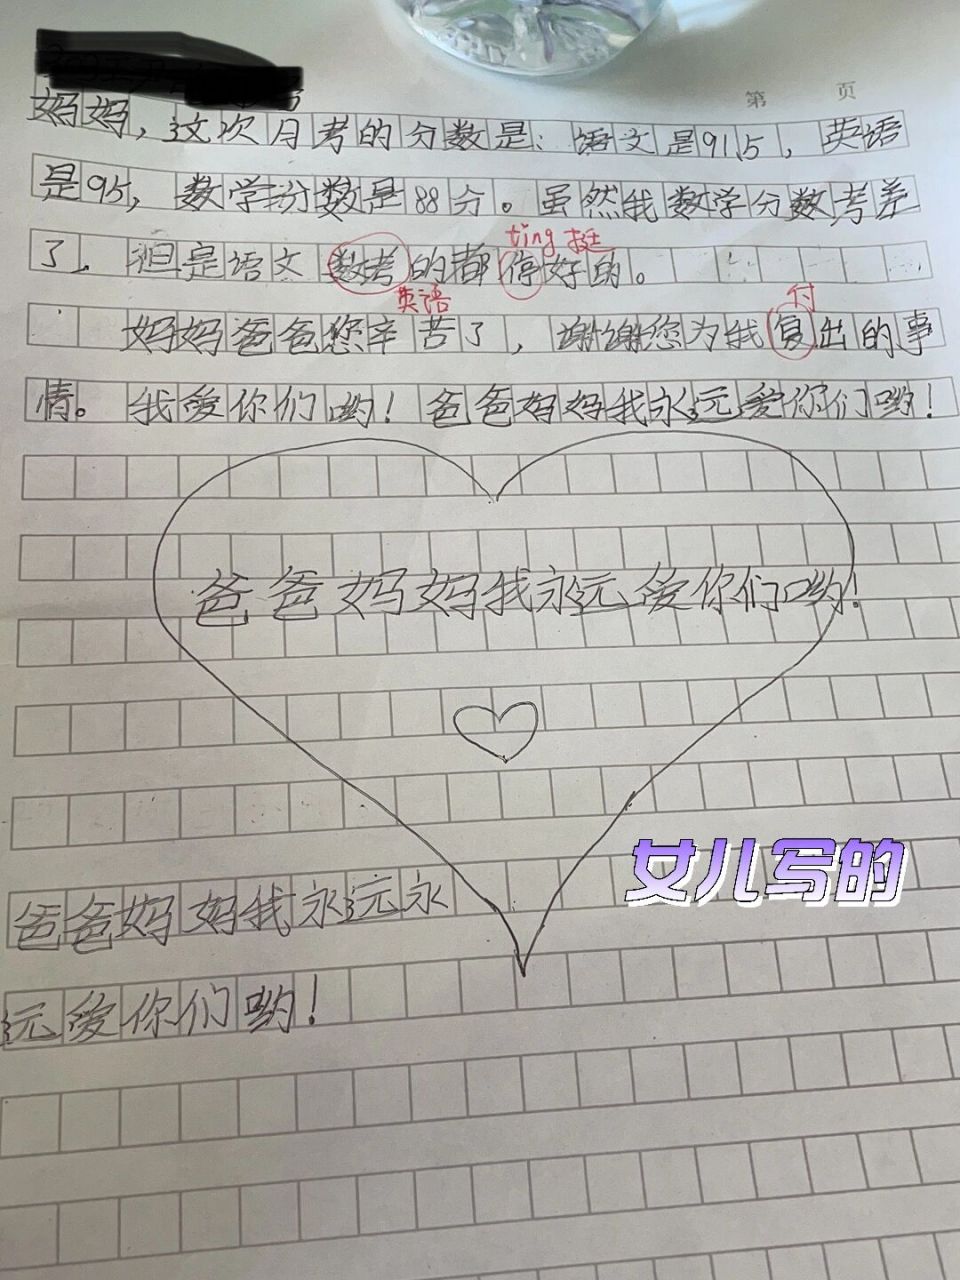 第 页
妈妈，这次月考的分数是：语文是91.5，英语
是95，数学分数是88分。虽然我数学分数考差
ting 挺
了，但是语文数考的都停好的。
英语
付
妈妈爸爸您辛苦了，谢谢您为我复出的事
情。我爱你们哟！爸爸妈妈我永远爱你们哟！
爸爸妈妈我永远爱你们哟！
女儿写的
爸爸妈妈我永远永
远爱你们哟！